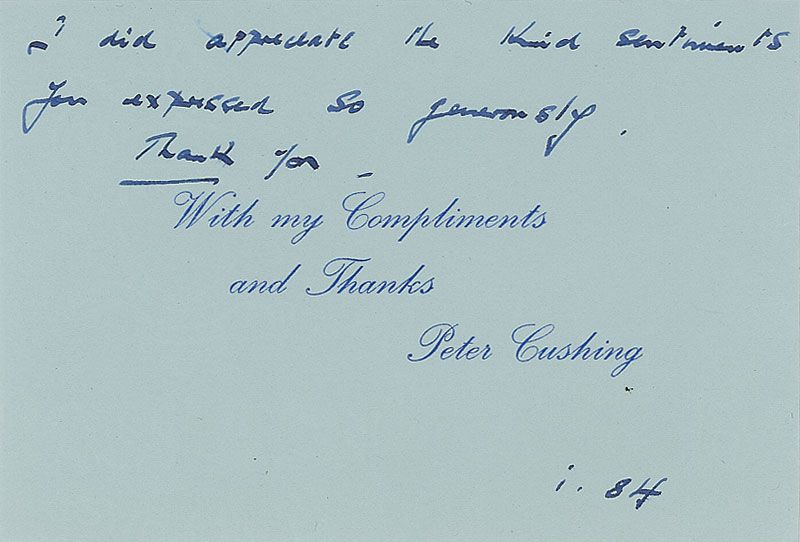 I did appreciate the kind sentiments
you expressed so generously.
Thank you –
With my Compliments
and Thanks
Peter Cushing
i. 84